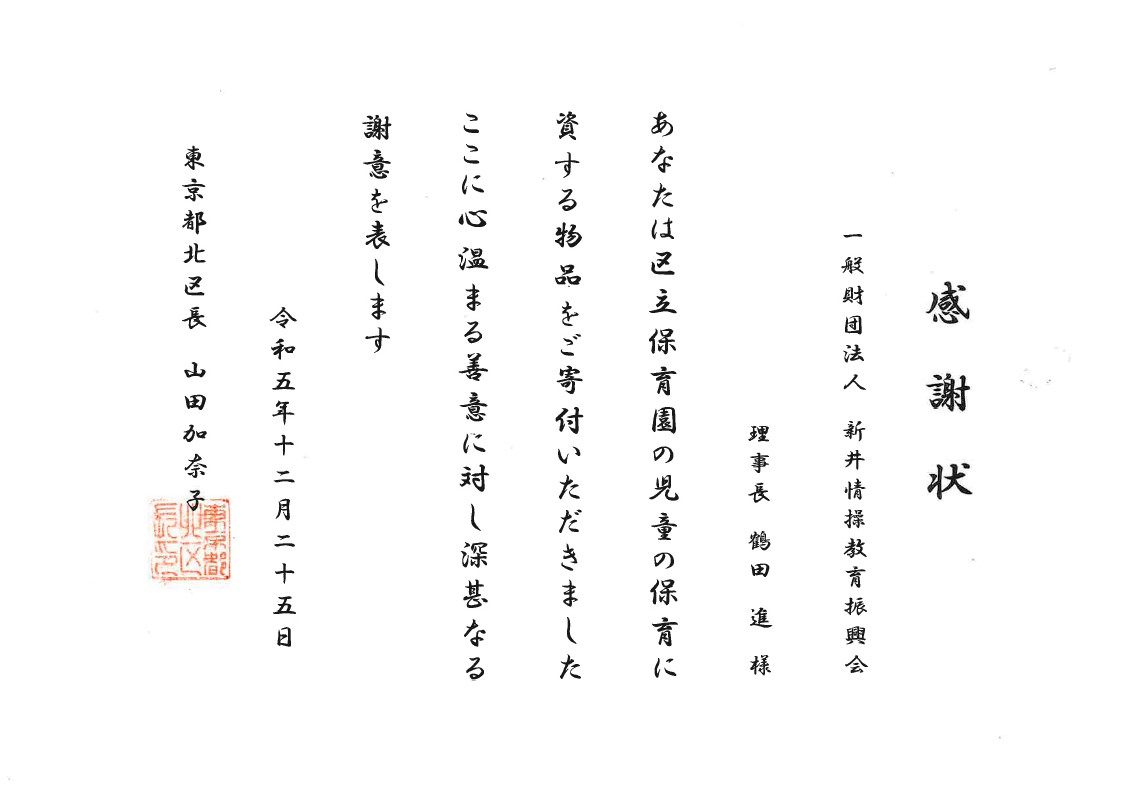 感謝状
一般財団法人 新井情操教育振興会
理事長 鶴田 進 様
あなたは区立保育園の児童の保育に
資する物品をご寄付いただきました
ここに心温まる善意に対し深甚なる
謝意を表します
令和五年十二月二十五日
東京都北区長 山田加奈子
東京都
北区
長之印